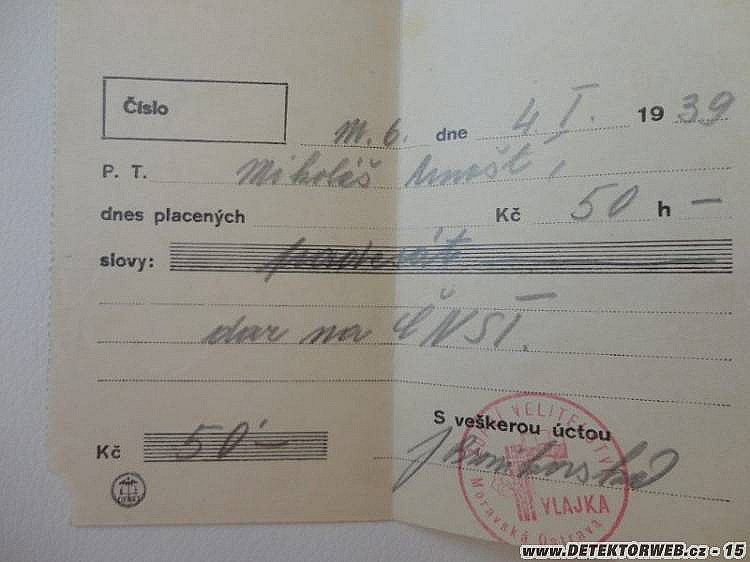 Číslo
M. 6. dne 4. I. 1939
P. T. Mikoláš
dnes placených Kč 50 h —
slovy: padesát
dar na ČNST.
S veškerou úctou
Kč 50'—
VELITELSTV
VLAJKA
Moravská Ostrava
www.DETEKTORWEB.cz - 15